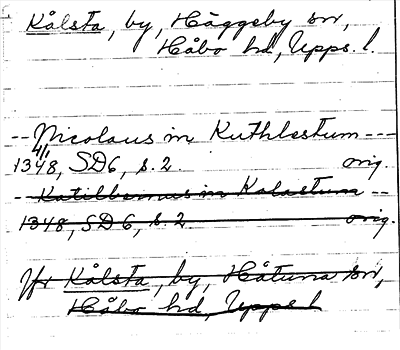 Kålsta, by, Häggeby sn,
Håbo hd, Upps. l.
-- Nicolaus in Kuthlestum ---
4/1
1348, SD6, s. 2. orig.
-- Katilbernus in Kalastum --
1348, SD 6, s. 2 orig.
Jfr Kålsta, by, Håtuna sn,
Håbo hd, Upps l